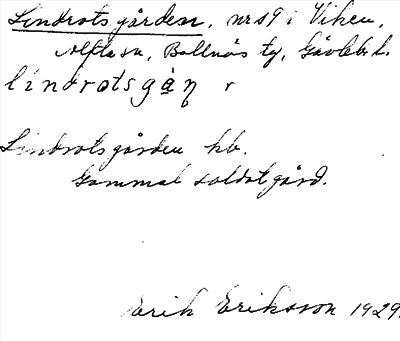 Lindrotsgården, nr 19 i Viken,
Alfta sn, Bollnäs tg, Gävleb. l.
lindrotsgàṇ
Lindrotsgården hb.
Gammal soldatgård.
Erik Eriksson 1929.